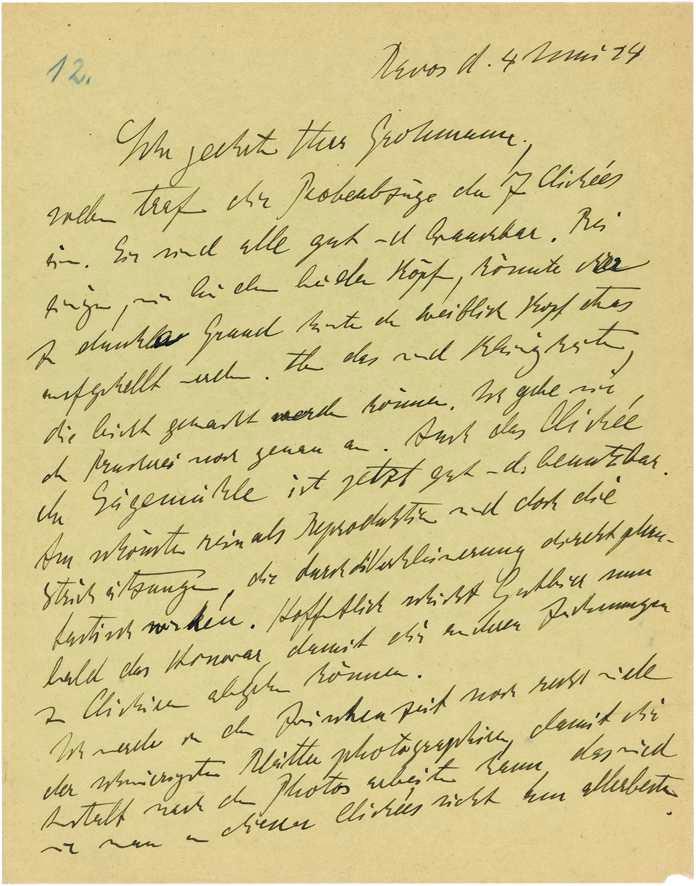 12.
Davos d. 4 Juni 24
Sehr geehrter Herr Grohmann,
soeben traf die Probeabzüge der 7 Clichées
ein. Sie sind alle gut und brauchbar. Bei
einigen, wie bei den beiden Köpfen, könnte der
zu dunkle Grund hinter dem weiblich Kopf etwas
aufgehellt werden. Aber das sind Kleinigkeiten,
die leicht gemacht werden können. Ich gebe sie
der Druckerei noch genau an. Auch das Clichée
der Sägemühle ist jetzt gut und benutzbar.
Am schönsten rein als Reproduktion sind doch die
Strichätzungen, die durch die Verkleinerung direkt phan-
tastisch wirken. Hoffentlich schickt Gurlitt nun
bald das Honorar, damit die anderen Zeichnungen
zu Clichieren abgehen können.
Ich werde in der Zwischenzeit noch recht viele
der schwierigsten Blätter photographieren, damit die
Anstalt nach den Photos arbeiten kann, das wird
wie man an diesen Clichées sieht am allerbesten.